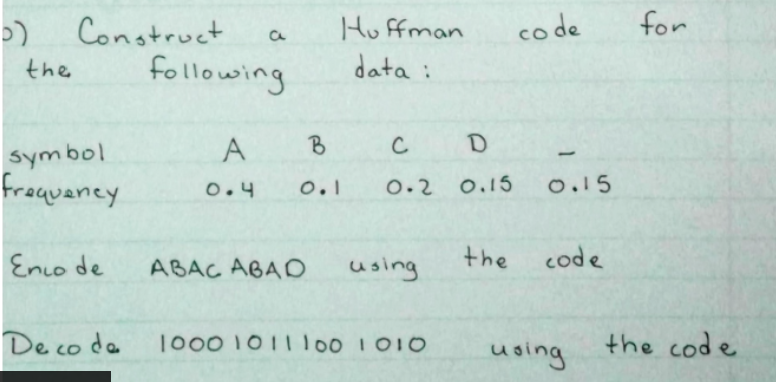 b) Construct a Huffman code for
the following data :
symbol A B C D _
frequency 0.4 0.1 0.2 0.15 0.15
Encode ABAC ABAD using the code
Decode 100010111001010 using the code